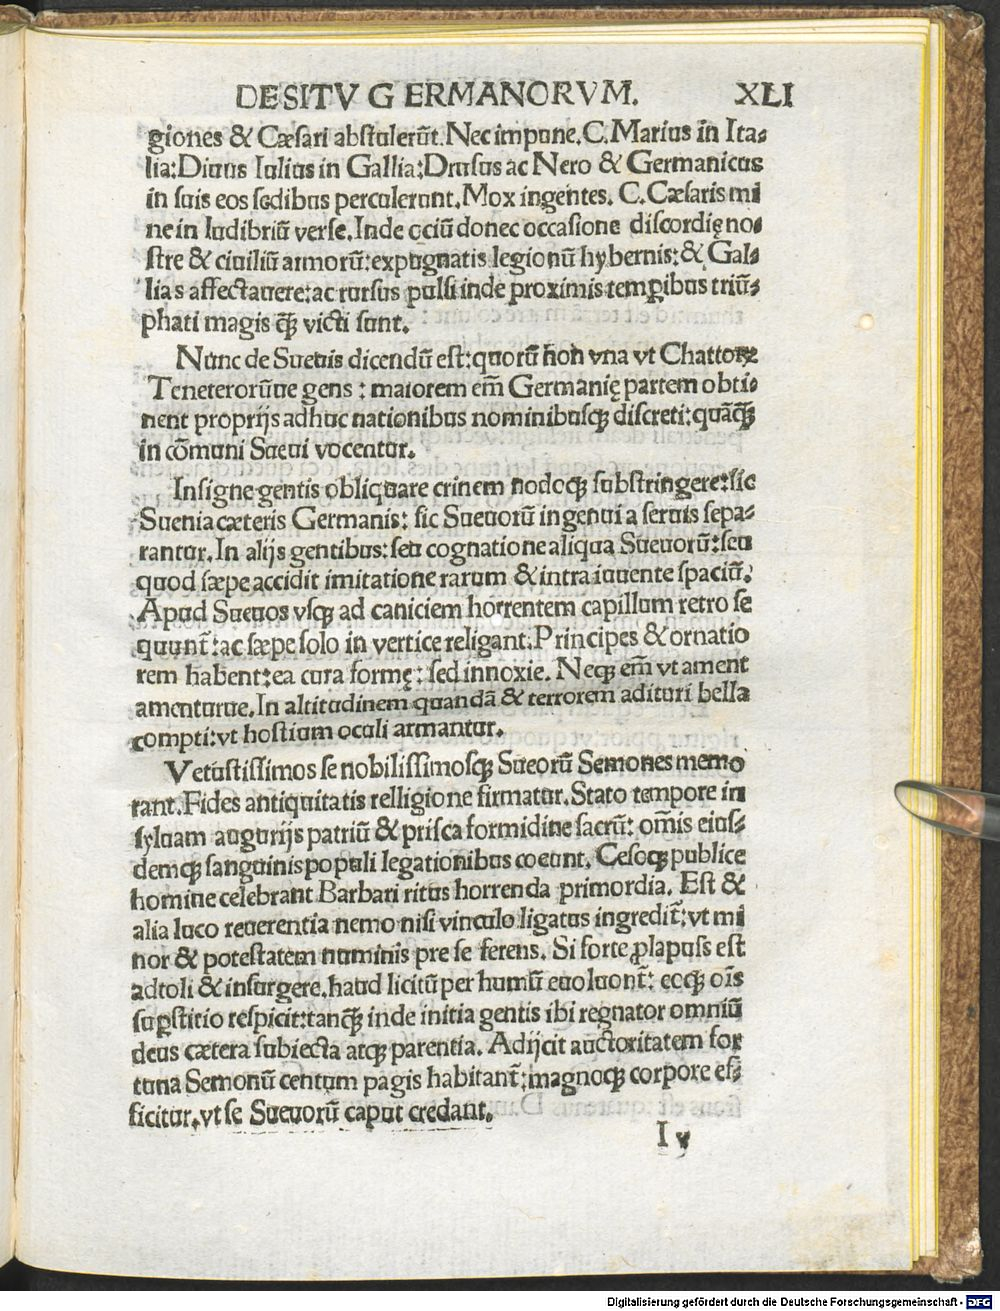 DE SITV G ERMANORVM. XLI
giones & Cæsari abstulerūt. Nec impune. C. Marius in Ita⸗
lia: Diuus Iulius in Gallia: Drusus ac Nero & Germanicus
in suis eos sedibus perculerunt. Mox ingentes. C. Cæsaris mi
ne in ludibriū verse. Inde ociū donec occasione discordię no⸗
stre & ciuiliū armorū: expugnatis legionū hybernis: & Gal⸗
lias affectauere: ac rursus pulsi inde proximis temꝑibus triū⸗
phati magis q̄ꝫ victi sunt.
Nunc de Sueuis dicendū est: quorū non vna vt Chattoꝝ
Teneterorūue gens: maiorem em̄ Germanię partem obti⸗
nent proprijs adhuc nationibus nominibusqꝫ discreti: quāq̄ꝫ
in cōmuni Sueui vocentur.
Insigne gentis obliquare crinem nodoqꝫ substringere: sic
Sueuia cæteris Germanis: sic Sueuorū ingenui a seruis sepa⸗
rantur. In alijs gentibus: seu cognatione aliqua Sueuorū: seu
quod sæpe accidit imitatione rarum & intra iuuente spaciū.
Apud Sueuos vsqꝫ ad caniciem horrentem capillum retro se
quunt̄: ac sæpe solo in vertice religant. Principes & ornatio
rem habent: ea cura formę: sed innoxie. Neqꝫ em̄ vt ament
amenturue. In altitudinem quandā & terrorem adituri bella
compti: vt hostium oculi armantur.
Vetustissimos se nobilissimosqꝫ Sueorū Semones memo
rant. Fides antiquitatis relligione firmatur. Stato tempore in
syluam augurijs patriū & prisca formidine sacrū: om̄is eius⸗
demqꝫ sanguinis populi legationibus coeunt. Cesoqꝫ publice
homine celebrant Barbari ritus horrenda primordia. Est &
alia luco reuerentia nemo nisi vinculo ligatus ingredit̄: vt mi
nor & potestatem numinis pre se ferens. Si forte ꝓlapuss est
adtoli & insurgere. haud licitū per humū euoluont̄: eoqꝫ oīs
suꝑstitio respicit: tanq̄ꝫ inde initia gentis ibi regnator omniū
deus cætera subiecta atqꝫ parentia. Adijcit auctoritatem for
tuna Semonū centum pagis habitant̄: magnoqꝫ corpore ef⸗
ficitur. vt se Sueuorū caput credant.
I y
Digitalisierung gefördert durch die Deutsche Forschungsgemeinschaft - DFG